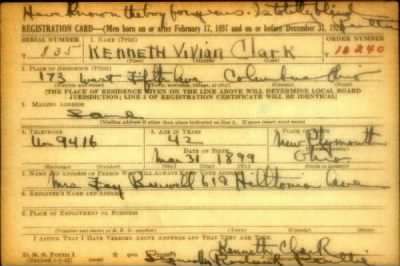 Have known the boy for years. Is totally blind
REGISTRATION CARD—(Men born on or after February 17, 1897 and on or before December 31, 1921)
SERIAL NUMBER 1. NAME (Print) ORDER NUMBER
835 KENNETH Vivian Clark 10240
(First) (Middle) (Last)
2. PLACE OF RESIDENCE (Print)
173 West Fifth Ave Columbus Ohio
(Number and street) (Town, township, village, or city) (County) (State)
[THE PLACE OF RESIDENCE GIVEN ON THE LINE ABOVE WILL DETERMINE LOCAL BOARD
JURISDICTION; LINE 2 OF REGISTRATION CERTIFICATE WILL BE IDENTICAL]
3. MAILING ADDRESS
Same
[Mailing address if other than place indicated on line 2. If same insert word same]
4. TELEPHONE 5. AGE IN YEARS 6. PLACE OF BIRTH
Un 9416 42 New Plymouth
DATE OF BIRTH (Town or county)
Mar 31 1899 Ohio
(Exchange) (Number) (Mo.) (Day) (Yr.) (State or country)
7. NAME AND ADDRESS OF PERSON WHO WILL ALWAYS KNOW YOUR ADDRESS
Mrs Fay 619 Ave
8. EMPLOYER'S NAME AND ADDRESS
9. PLACE OF EMPLOYMENT OR BUSINESS
(Number and street or R. F. D. number) (Town) (County) (State)
I AFFIRM THAT I HAVE VERIFIED ABOVE ANSWERS AND THAT THEY ARE TRUE.
D. S. S. Form 1 Kenneth Clark